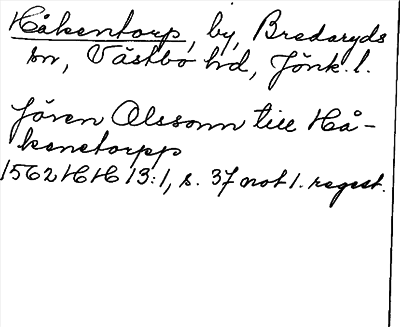 Håkentorp, by, Bredaryds
sn, Västbo hd, Jönk. l.
Jören Olssonn till Hå-
kenetorpp
1562 HH 13:1, s. 37 not 1. regest.